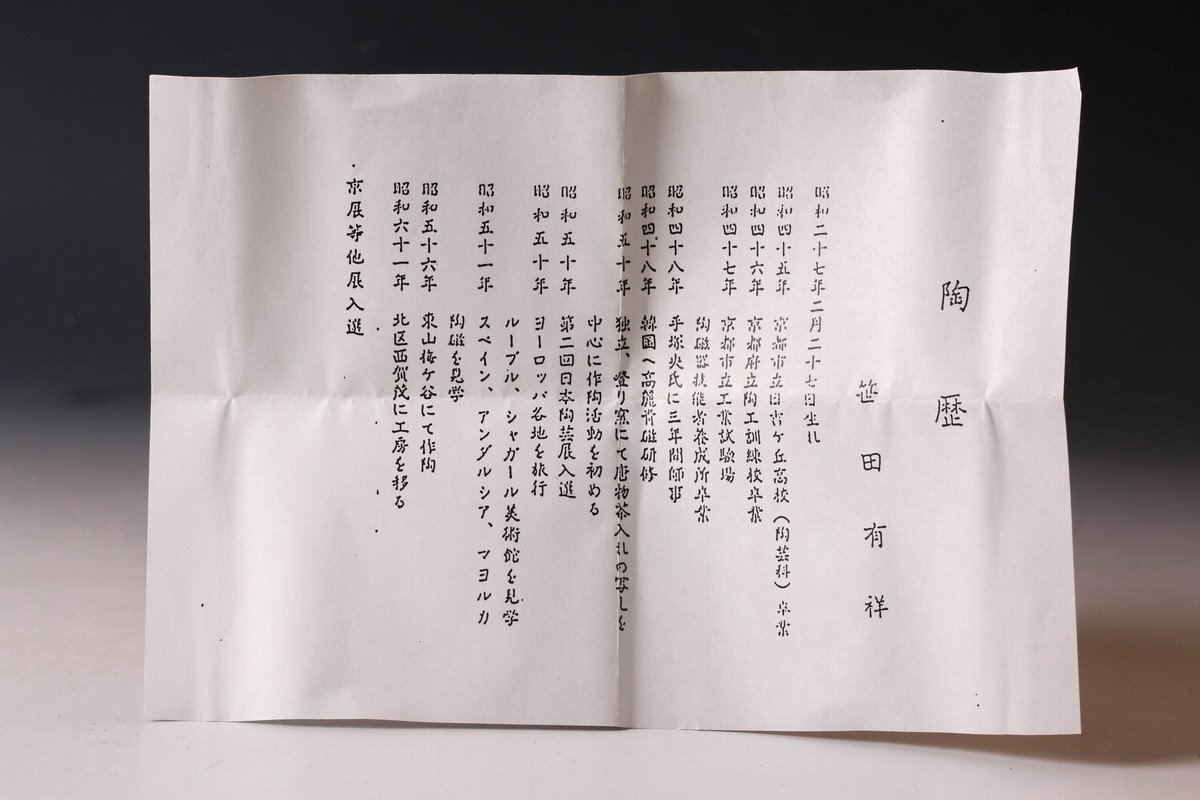 陶歴
笹田有祥
昭和二十七年二月二十七日生れ
昭和四十五年 京都市立日吉ケ丘高校（陶芸科）卒業
昭和四十六年 京都府立陶工訓練校卒業
昭和四十七年 京都市立工業試験場
陶磁器技能者養成所卒業
昭和四十八年 手塚央氏に三年間師事
昭和四十八年 韓国へ高麗青磁研修
昭和五十年 独立、登り窯にて唐物茶入れの写しを
中心に作陶活動を初める
昭和五十年 第二回日本陶芸展入選
昭和五十年 ヨーロッパ各地を旅行
ルーブル、シャガール美術館を見学
昭和五十一年 スペイン、アンダルシア、マヨルカ
陶磁を見学
昭和五十六年 東山梅ケ谷にて作陶
昭和六十一年 北区西賀茂に工房を移る
京展等他展入選